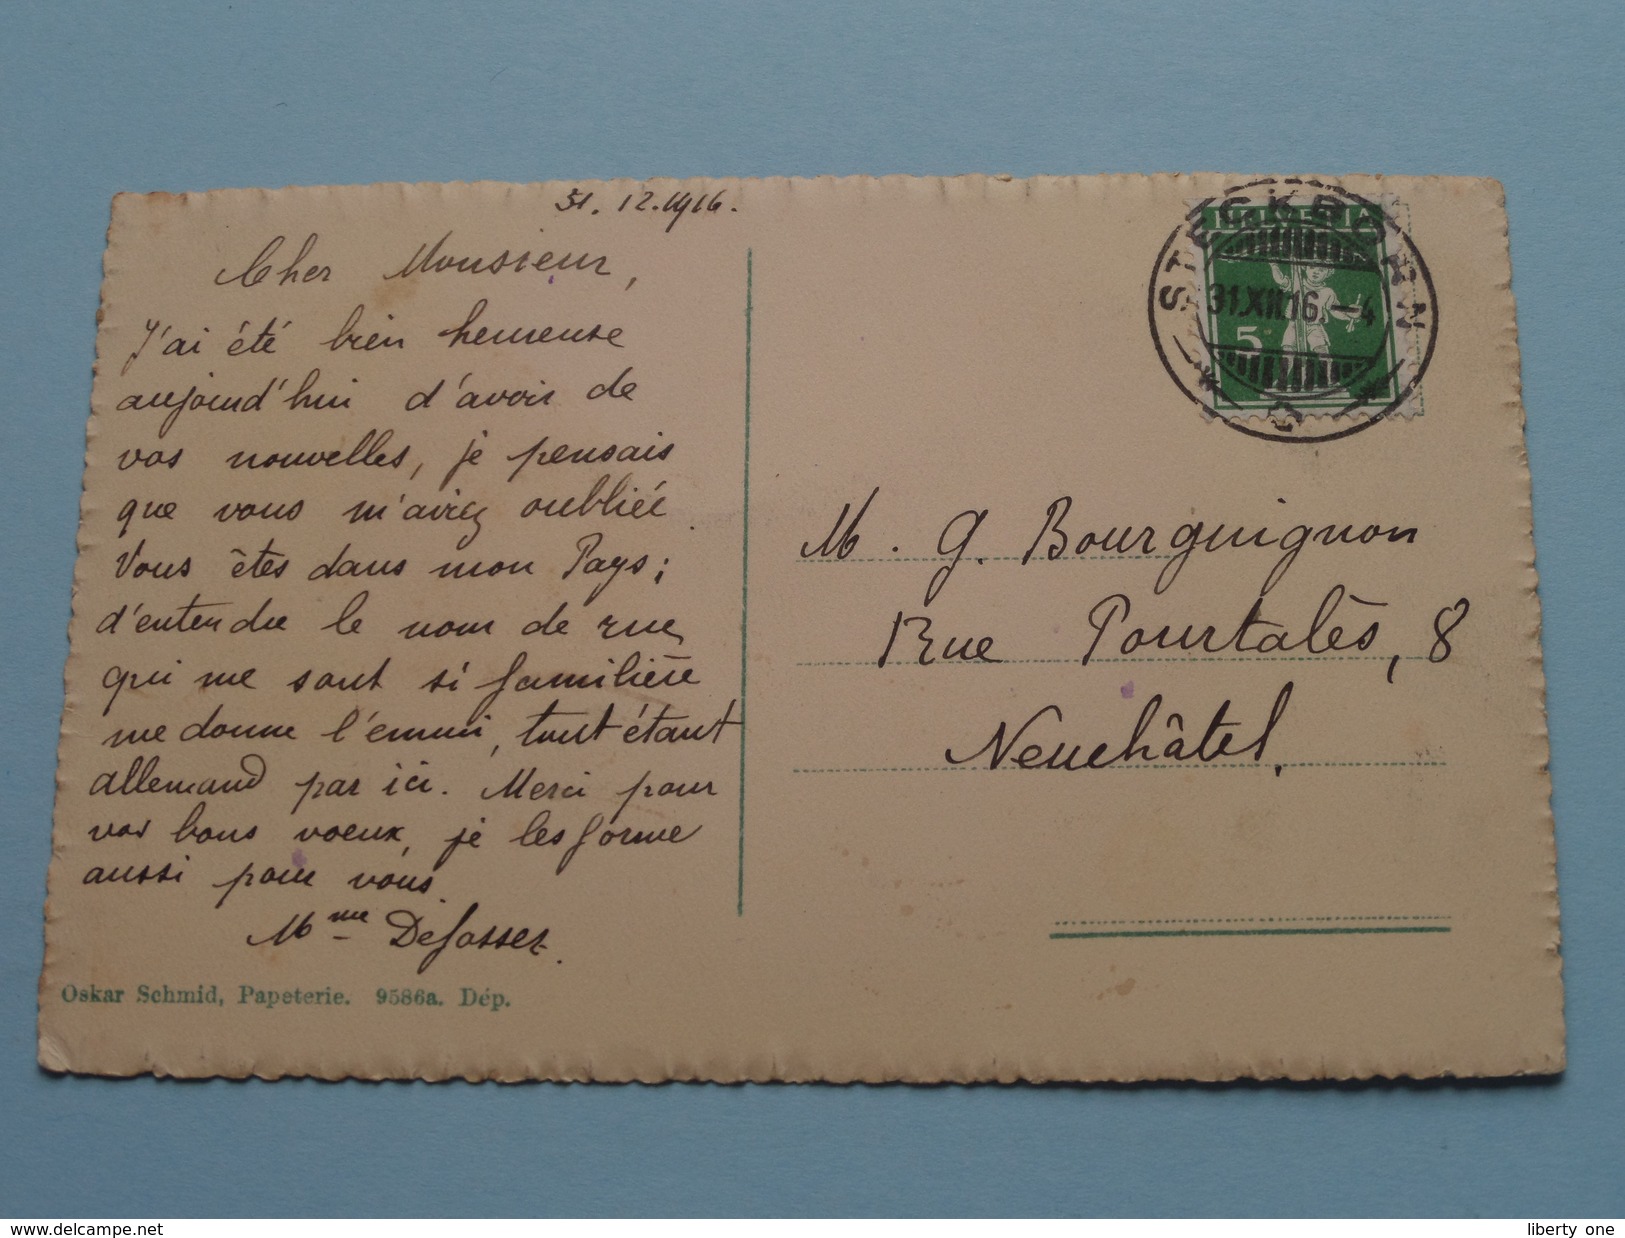 31. 12. 1916.
Cher Monsieur,
J'ai été bien heureuse
aujourd'hui d'avoir de
vos nouvelles, je pensais
que vous m'aviez oubliée.
Vous êtes dans mon Pays;
d'entendre le nom de rue,
qui me sont si familière
me donne l'ennui, tout étant
allemand par ici. Merci pour
vos bons voeux, je les forme
aussi pour vous.
Mme Defossez.
Oskar Schmid, Papeterie. 9586a. Dép.
STECKBORN
HELVETIA
31.XII.16.-4
5
M. G. Bourguignon
Rue Pourtalès, 8
Neuchâtel.
delcampe.net
liberty one